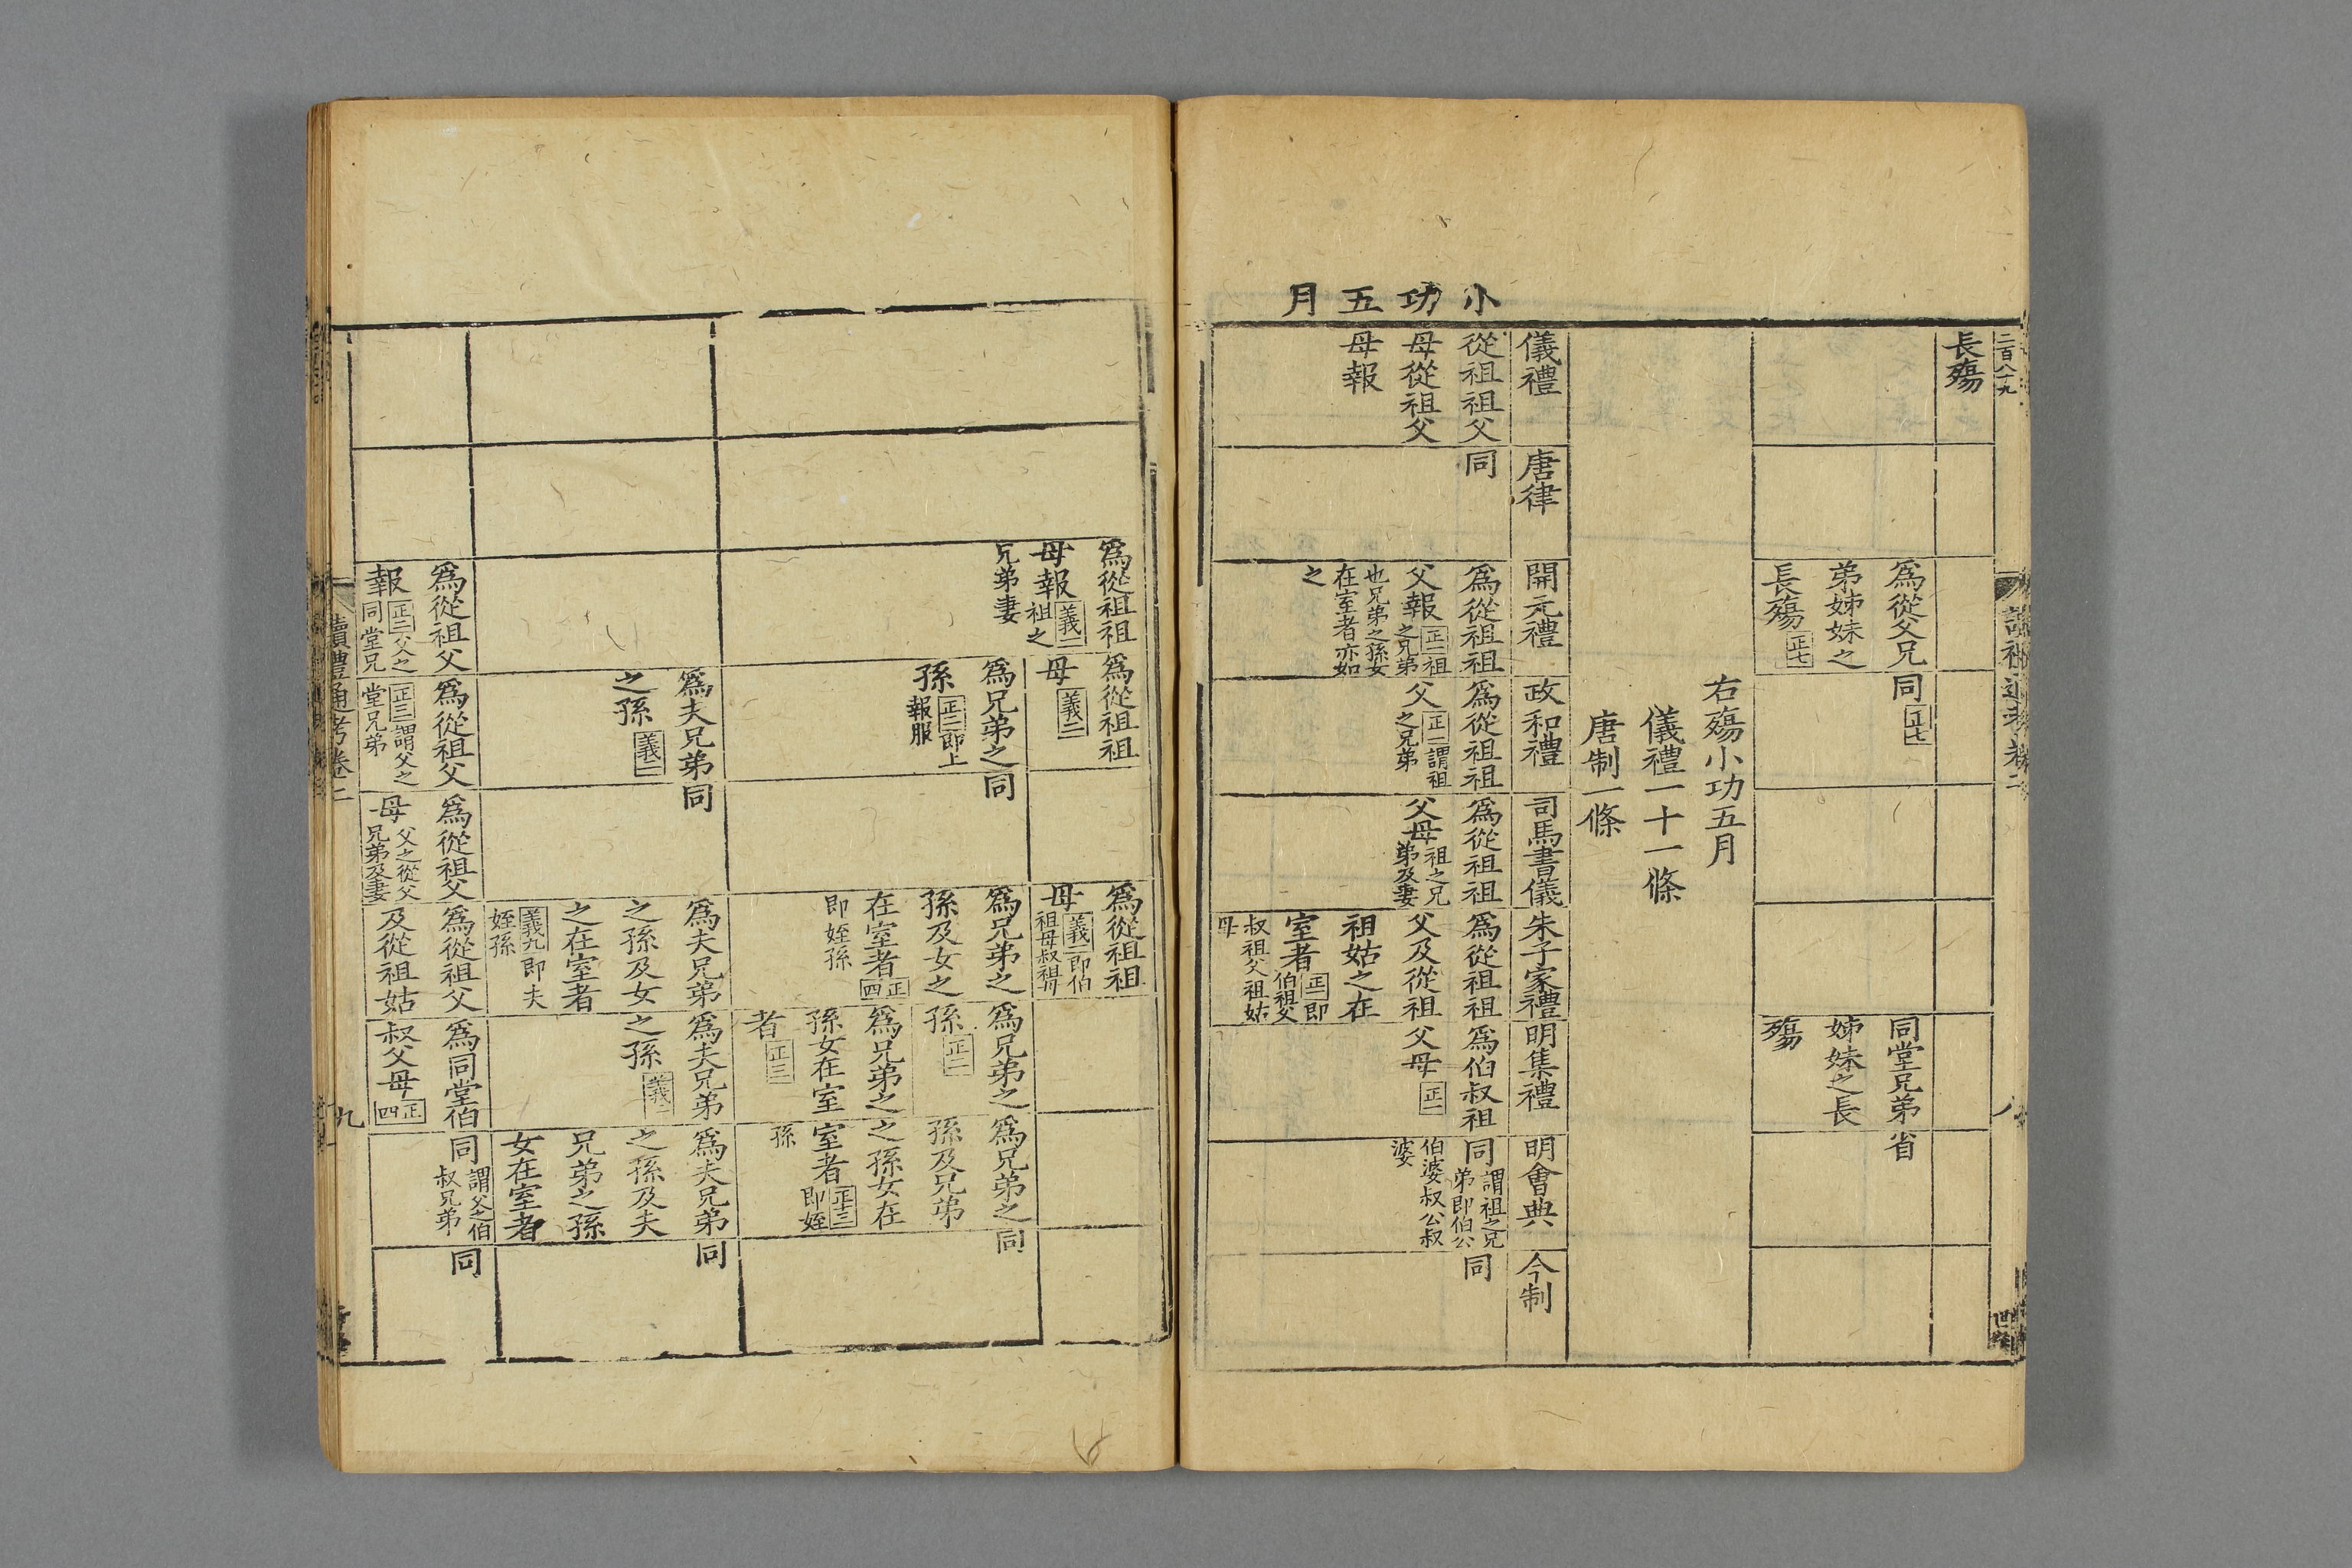 小功五月
二百八十九
長殤
爲從父兄
弟姊妹之
長殤 正七
同 正七
同堂兄弟
姊妹之長
殤
省
右殤小功五月
儀禮一十一條
唐制一條
儀禮
唐律
開元禮
政和禮
司馬書儀
朱子家禮
明集禮
明會典
今制
從祖祖父
母從祖父
母報
同
爲從祖祖
父報 正一 祖之兄弟
也兄弟之孫女
在室者亦如
之
爲從祖祖
父 正二 謂祖之兄弟
爲從祖祖
父母 祖之兄弟及妻
爲從祖祖
父及從祖
祖姑之在
室者 正一 即伯祖父
叔祖父祖姑
母
爲伯叔祖
父母 正一
同 謂祖之兄弟即伯公
伯婆叔公叔
婆
同
爲從祖祖
母報 義一 祖之
兄弟妻
爲從祖祖
母 義二
爲從祖祖
母 義二 即伯祖母叔祖母
爲兄弟之
孫 正二 即上報服
同
爲兄弟之
孫及女之
在室者 正四
即姪孫
爲兄弟之
孫 正二
爲兄弟之
孫女在室
者 正三
爲兄弟之
孫及兄弟
之孫女在
室者 正十三 即姪
孫
同
爲夫兄弟
之孫 義二
同
爲夫兄弟
之孫及女
之在室者
義九 即夫姪孫
爲夫兄弟
之孫 義一
爲夫兄弟
之孫及夫
兄弟之孫
女在室者
同
爲從祖父
報 正二 父之同堂兄
爲從祖父
正三 謂父之堂兄弟
爲從祖父
母 父之從父兄弟及妻
爲從祖父
及從祖姑
爲同堂伯
叔父母 正四
同 謂父之伯叔兄弟
同
讀禮通考卷二
九